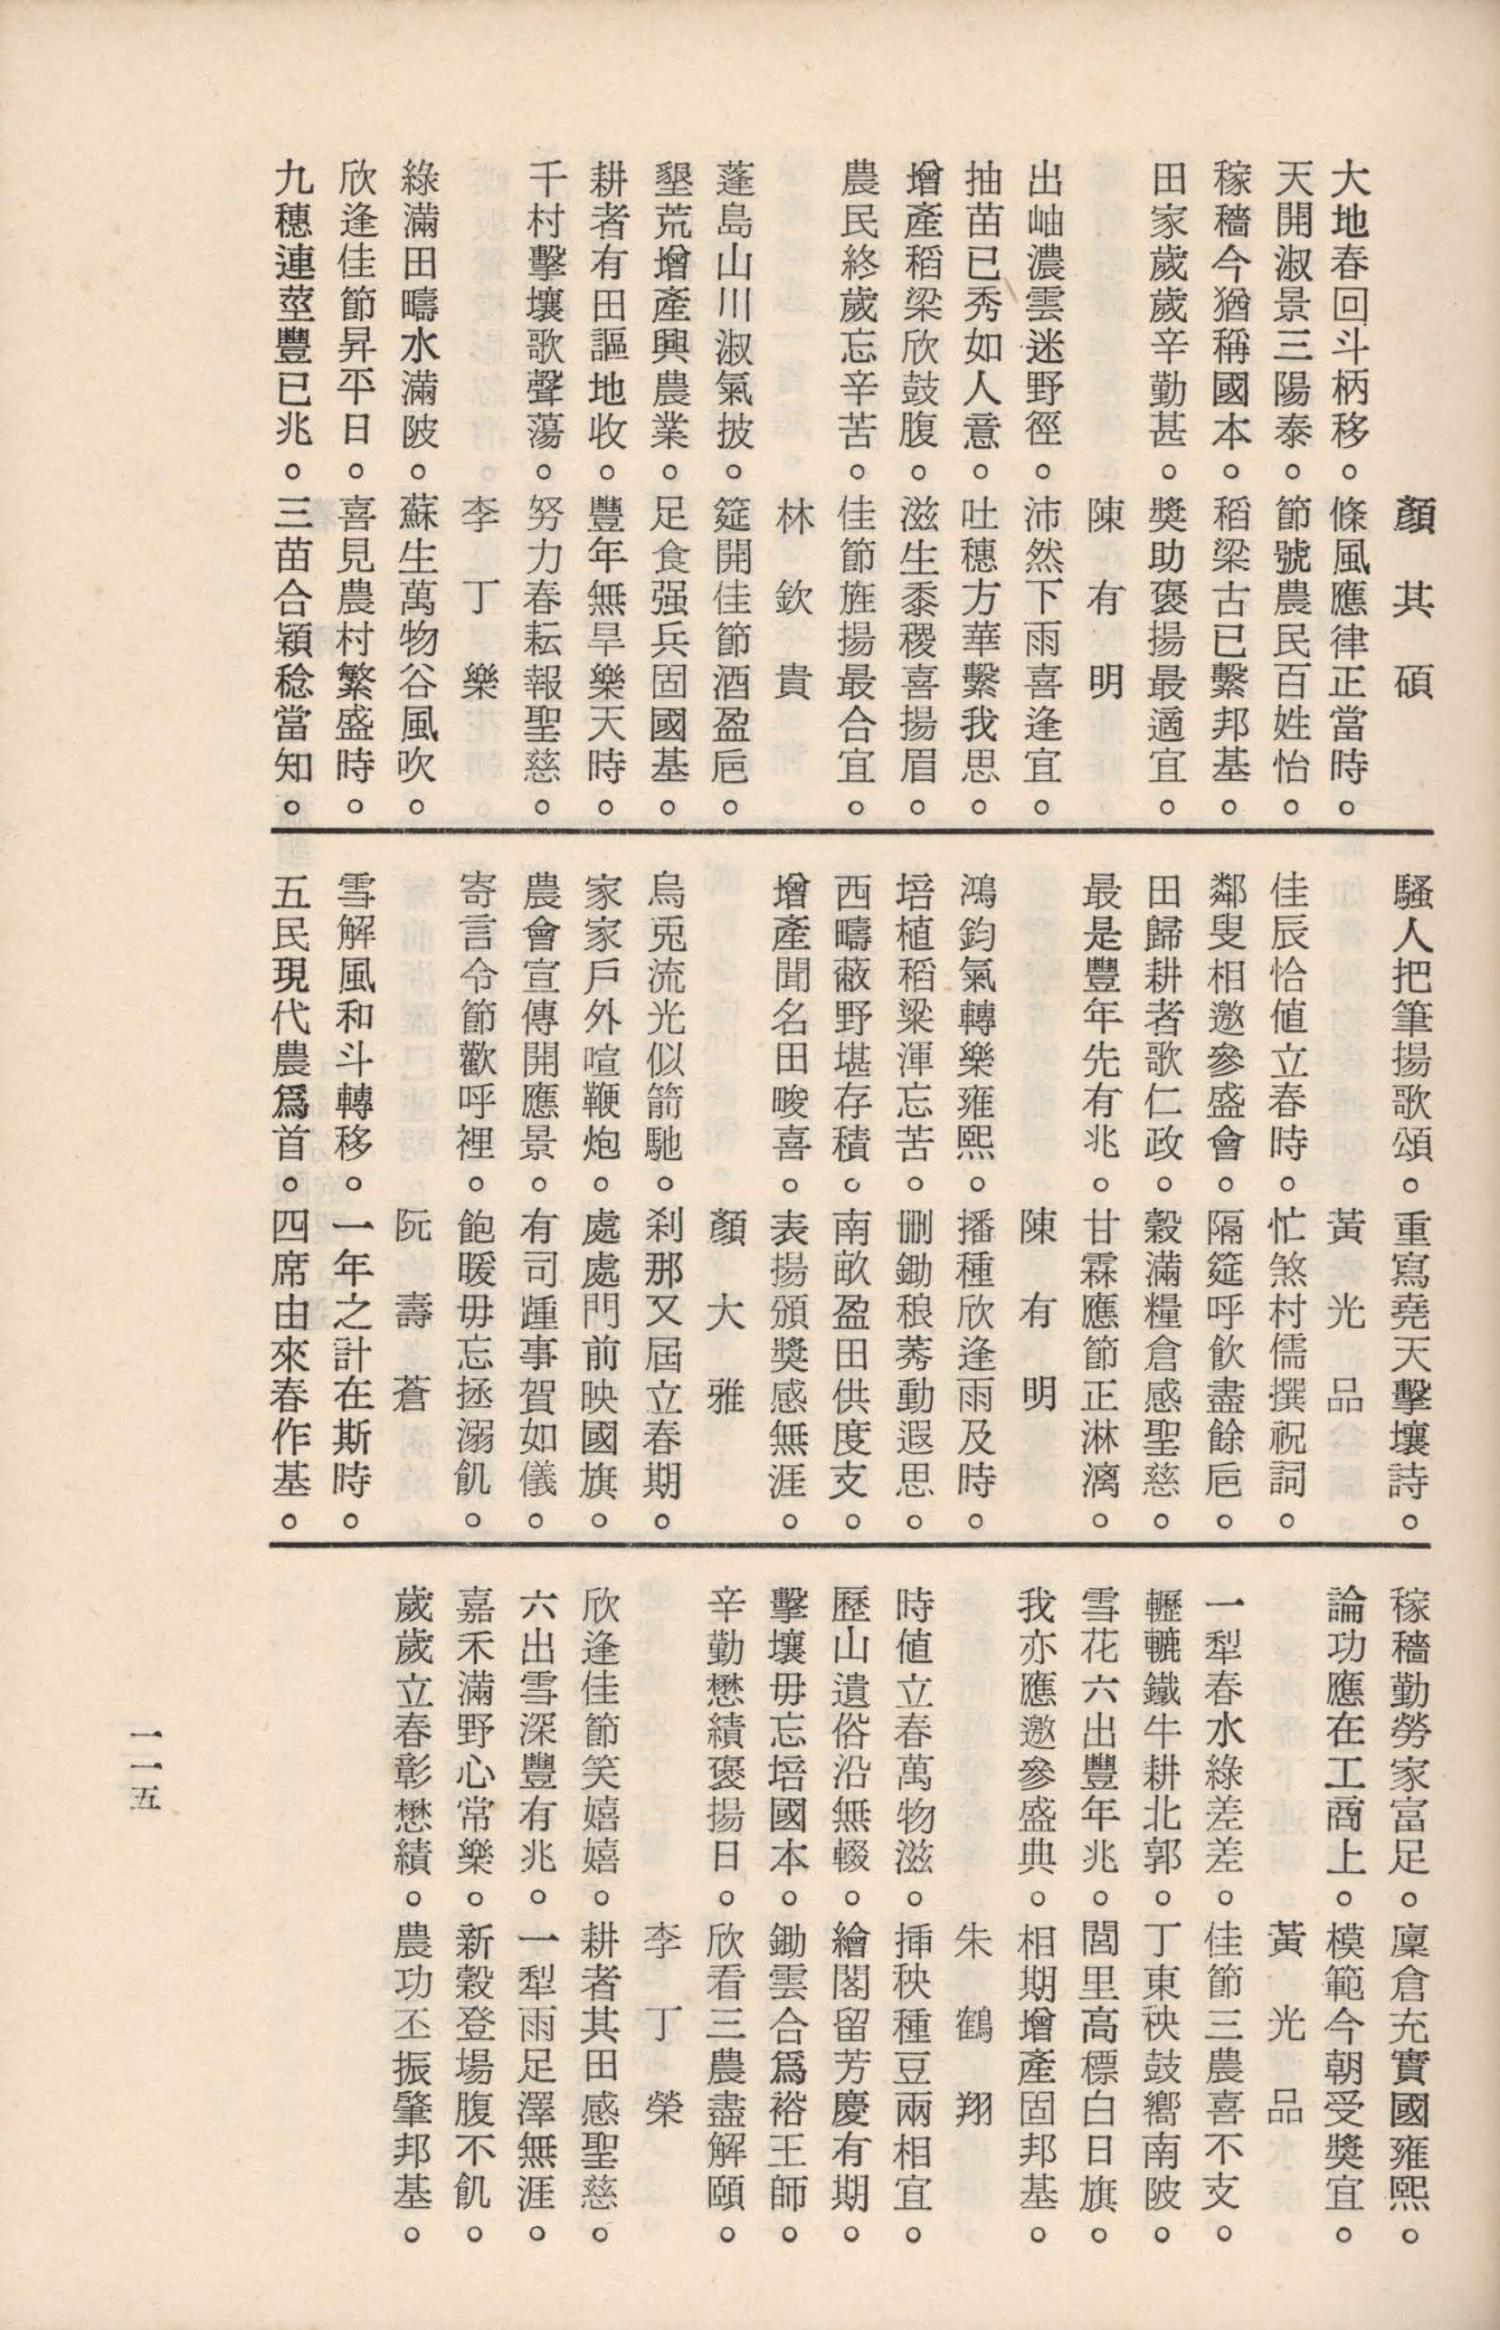 顏其碩
大地春回斗柄移。條風應律正當時。
天開淑景三陽泰。節號農民百姓怡。
稼穡今猶稱國本。稻粱古已繫邦基。
田家歲歲辛勤甚。獎助褒揚最適宜。
陳有明
出岫濃雲迷野徑。沛然下雨喜逢宜。
抽苗已秀如人意。吐穗方華繫我思。
增產稻粱欣鼓腹。滋生黍稷喜揚眉。
農民終歲忘辛苦。佳節旌揚最合宜。
林欽貴
蓬島山川淑氣披。筵開佳節酒盈巵。
墾荒增產興農業。足食强兵固國基。
耕者有田謳地收。豐年無旱樂天時。
千村擊壤歌聲蕩。努力春耘報聖慈。
李丁樂
綠滿田疇水滿陂。蘇生萬物谷風吹。
欣逢佳節昇平日。喜見農村繁盛時。
九穗連莖豐已兆。三苗合穎稔當知。
騷人把筆揚歌頌。重寫堯天擊壤詩。
黃光品
佳辰恰值立春時。忙煞村儒撰祝詞。
鄰叟相邀參盛會。隔筵呼飲盡餘巵。
田歸耕者歌仁政。穀滿糧倉感聖慈。
最是豐年先有兆。甘霖應節正淋漓。
陳有明
鴻鈞氣轉樂雍熙。播種欣逢雨及時。
培植稻粱渾忘苦。刪鋤稂莠動遐思。
西疇蔽野堪存積。南畝盈田供度支。
增產聞名田畯喜。表揚頒獎感無涯。
顏大雅
烏兎流光似箭馳。刹那又屆立春期。
家家戶外喧鞭炮。處處門前映國旗。
農會宣傳開應景。有司踵事賀如儀。
寄言令節歡呼裡。飽暖毋忘拯溺飢。
阮壽蒼
雪解風和斗轉移。一年之計在斯時。
五民現代農爲首。四席由來春作基。
稼穡勤勞家富足。廩倉充實國雍熙。
論功應在工商上。模範今朝受獎宜。
黃光品
一犁春水綠差差。佳節三農喜不支。
轣轆鐵牛耕北郭。丁東秧鼓嚮南陂。
雪花六出豐年兆。閭里高標白日旗。
我亦應邀參盛典。相期增產固邦基。
朱鶴翔
時值立春萬物滋。挿秧種豆兩相宜。
歷山遺俗沿無輟。繪閣留芳慶有期。
擊壤毋忘培國本。鋤雲合爲裕王師。
辛勤懋績褒揚日。欣看三農盡解頤。
李丁榮
欣逢佳節笑嬉嬉。耕者其田感聖慈。
六出雪深豐有兆。一犁雨足澤無涯。
嘉禾滿野心常樂。新穀登場腹不飢。
歲歲立春彰懋績。農功丕振肇邦基。
一一五